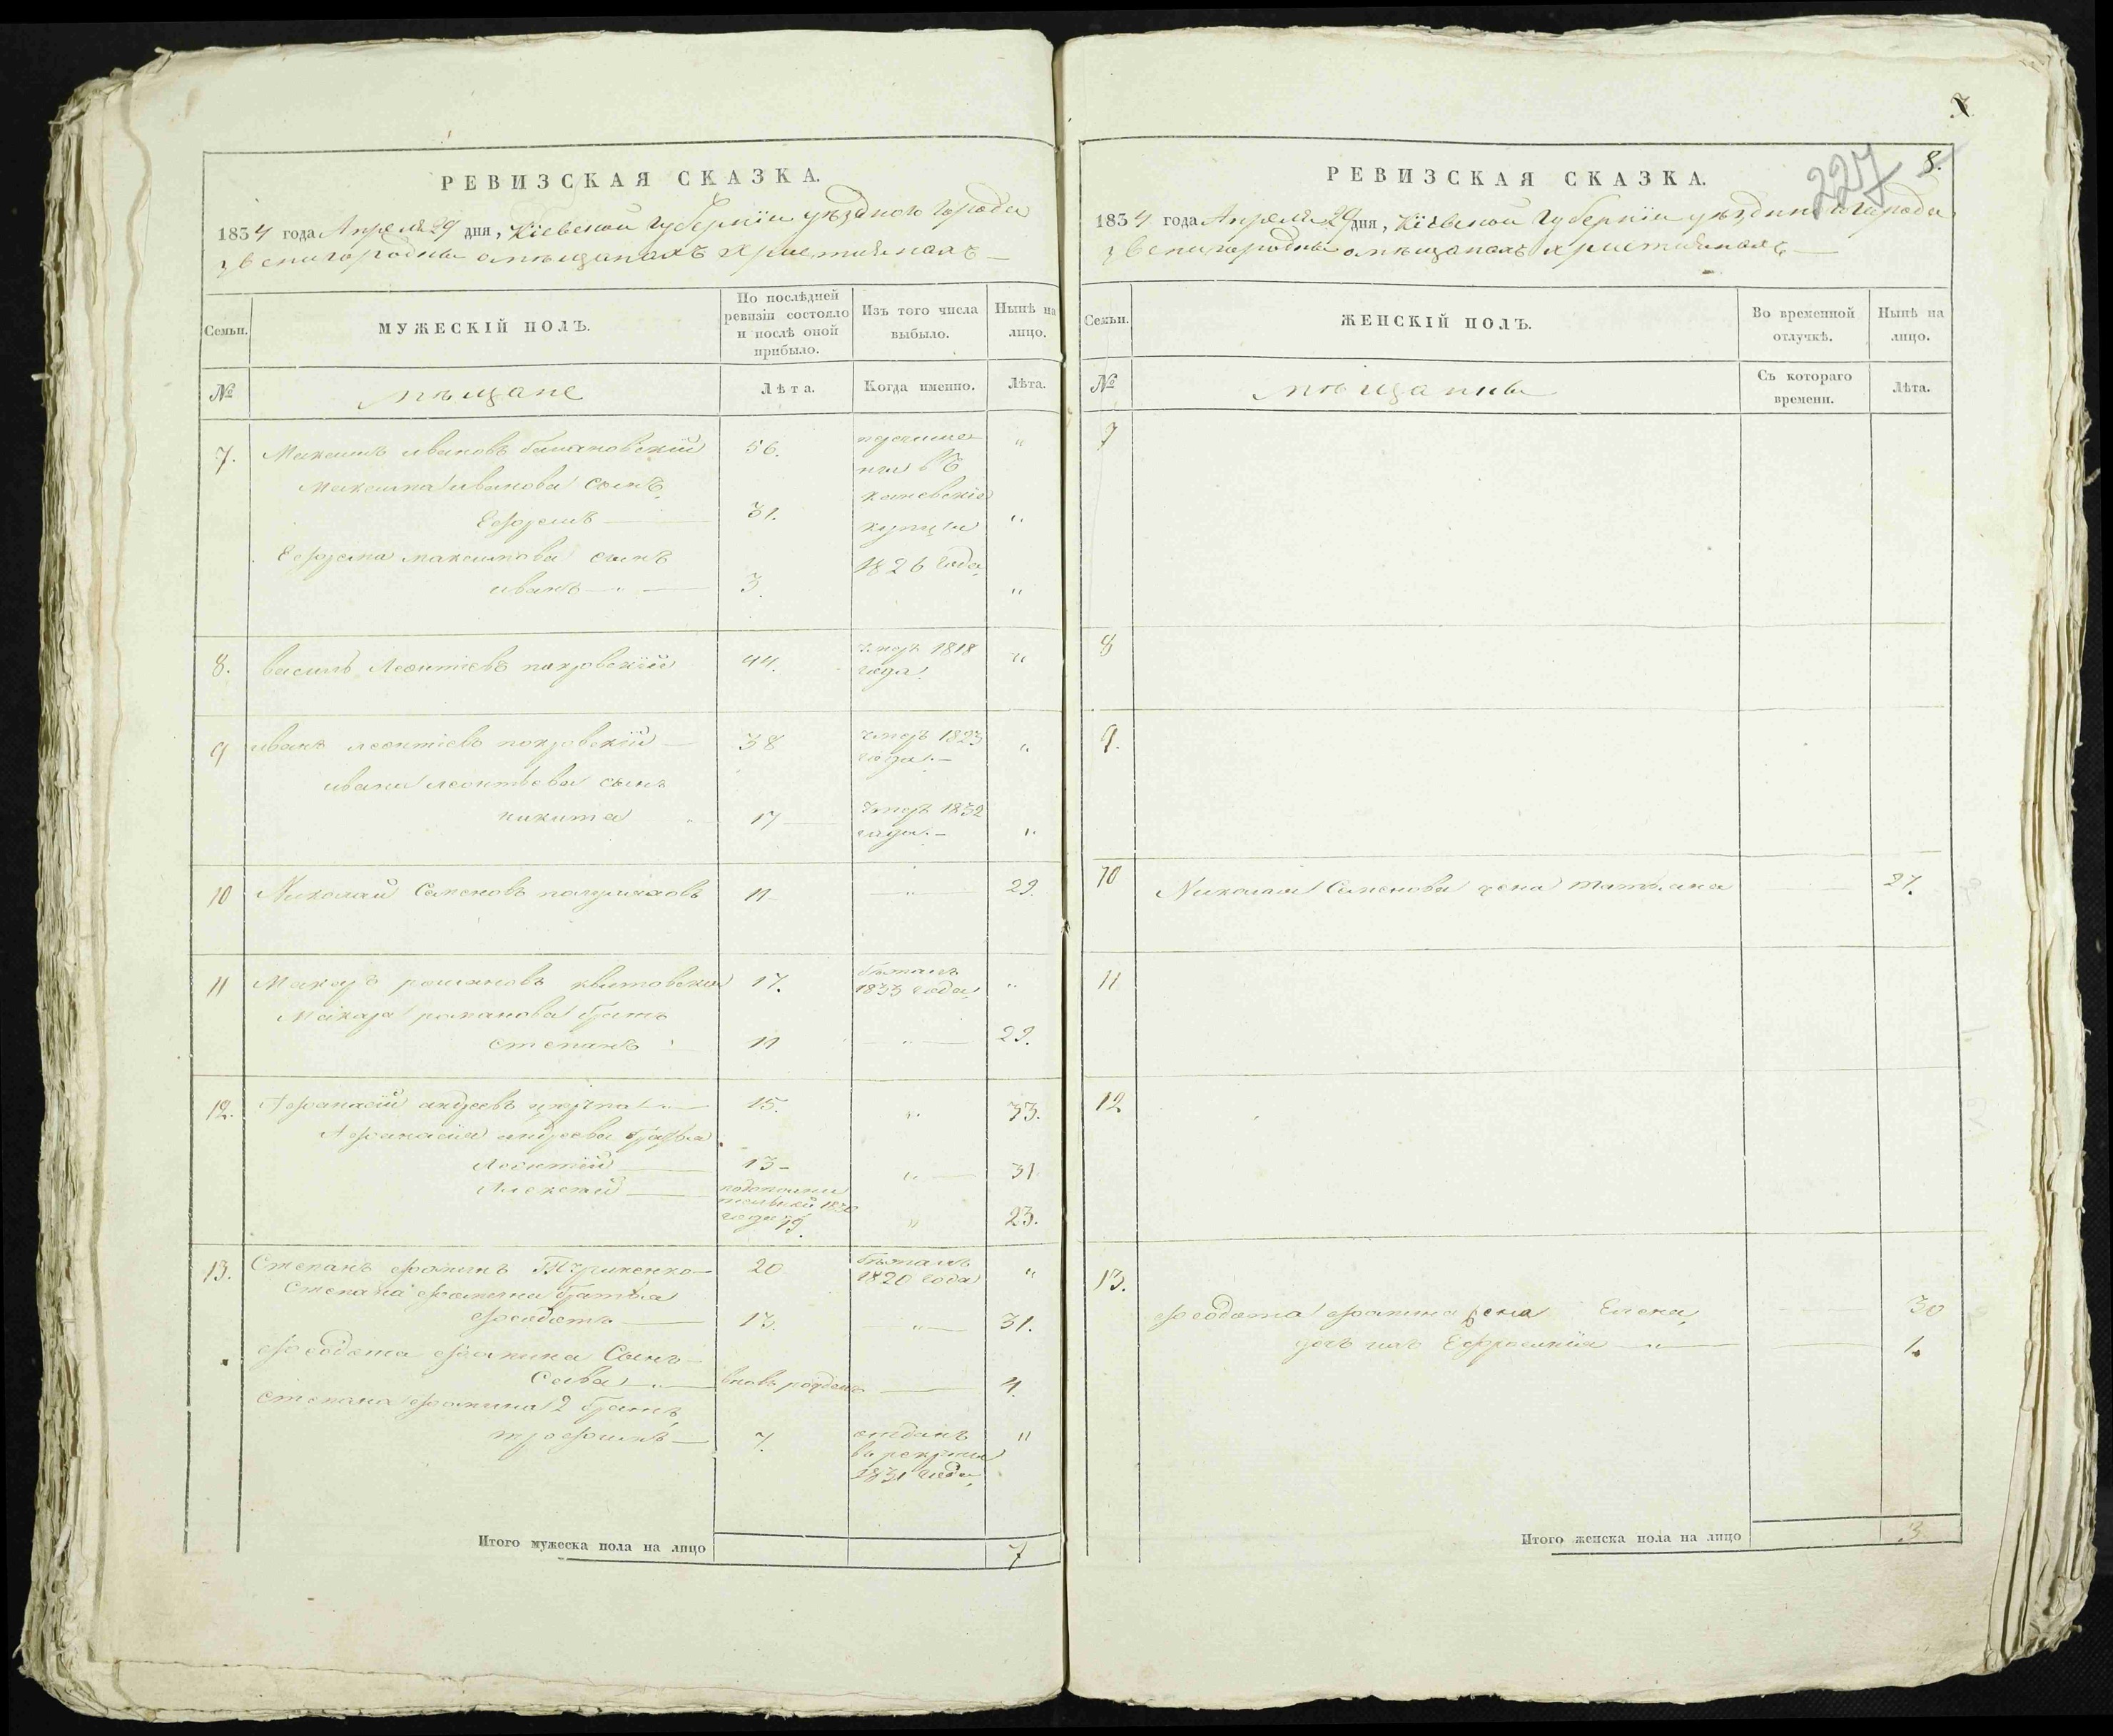 РЕВИЗСКАЯ СКАЗКА.
1834 года Апреля 29 дня, Кіевской Губерніи уѣзднаго города
Звенигородки о мѣщанахъ христианахъ
Семьи.
МУЖЕСКІЙ ПОЛЪ.
По послѣдней ревизіи состояло и послѣ оной прибыло.
Изъ того числа выбыло.
Нынѣ на лицо.
№
мѣщане
Лѣта.
Когда именно.
Лѣта.
7. Максимъ Ивановъ 56. "
Максима Иванова сынъ
Ефремъ 31. каневские "
купцы
Ефрема Максимова сынъ 1826 года
иванъ 3. "
8. василь Леонтіевъ покровскій 44. умеръ 1818 "
года
9 иванъ леонтіевъ покровскій 38 умеръ 1823 "
года
ивана леонтьева сынъ
никита 17 умеръ 1832 "
года
10 Николай Семеновъ 11 " 29.
11 Макаръ романовъ 17. бѣжалъ "
1833 года
Макара романова братъ
степанъ 11 " 29.
12. Афанасій андреевъ 15. " 33.
Афанасия андреева братья
Леонтій 13 " 31
Алексей
1830
года 19. " 23.
13. Степанъ фоминъ 20 бѣжалъ "
1820 года
Степана фомина братья
феодотъ 13. " 31.
феодота фомина Сынъ
Сава вновь рожденъ 4.
степана фомина 2 братъ
трофимъ 7. отданъ "
въ рекруты
1831 года
Итого мужеска пола на лицо 7
7
227 8.
РЕВИЗСКАЯ СКАЗКА.
1834 года Апреля 29 дня, Кіевской Губерніи уѣзднаго города
Звенигородки о мѣщанахъ христианахъ
Семьи.
ЖЕНСКІЙ ПОЛЪ.
Во временной отлучкѣ.
Нынѣ на лицо.
№
мѣщанки
Съ котораго времени.
Лѣта.
7
8
9.
10 Николая Семенова жена татьяна 27.
11
12
13.
феодота фомина жена Елена 30
дочь ихъ Ефросинія 1.
Итого женска пола на лицо 3